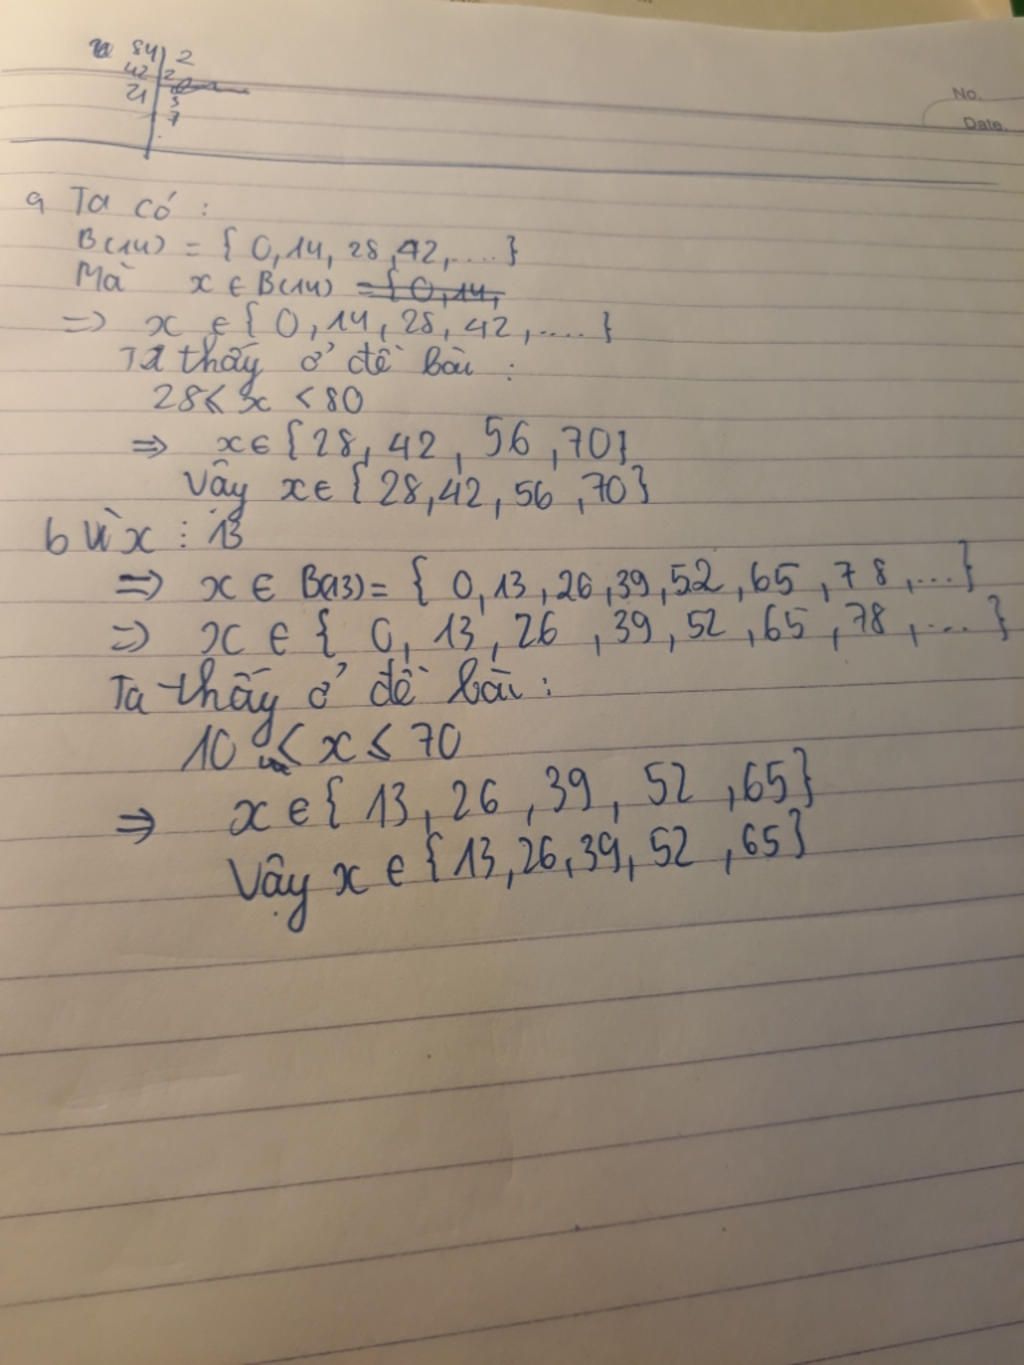 84 2
42 2
21 3
7
No.
Date.
a Ta có :
B(14) = { 0, 14, 28, 42, .... }
Mà x ∈ B(14) = { 0, 14,
=> x ∈ { 0, 14, 28, 42, .... }
Ta thấy ở đề bài :
28 ≤ x < 80
=> x ∈ { 28, 42, 56, 70 }
Vậy x ∈ { 28, 42, 56, 70 }
b Vì x ⋮ 13
=> x ∈ B(13) = { 0, 13, 26, 39, 52, 65, 78, ... }
=> x ∈ { 0, 13, 26, 39, 52, 65, 78, ... }
Ta thấy ở đề bài :
10 < x ≤ 70
=> x ∈ { 13, 26, 39, 52, 65 }
Vậy x ∈ { 13, 26, 39, 52, 65 }